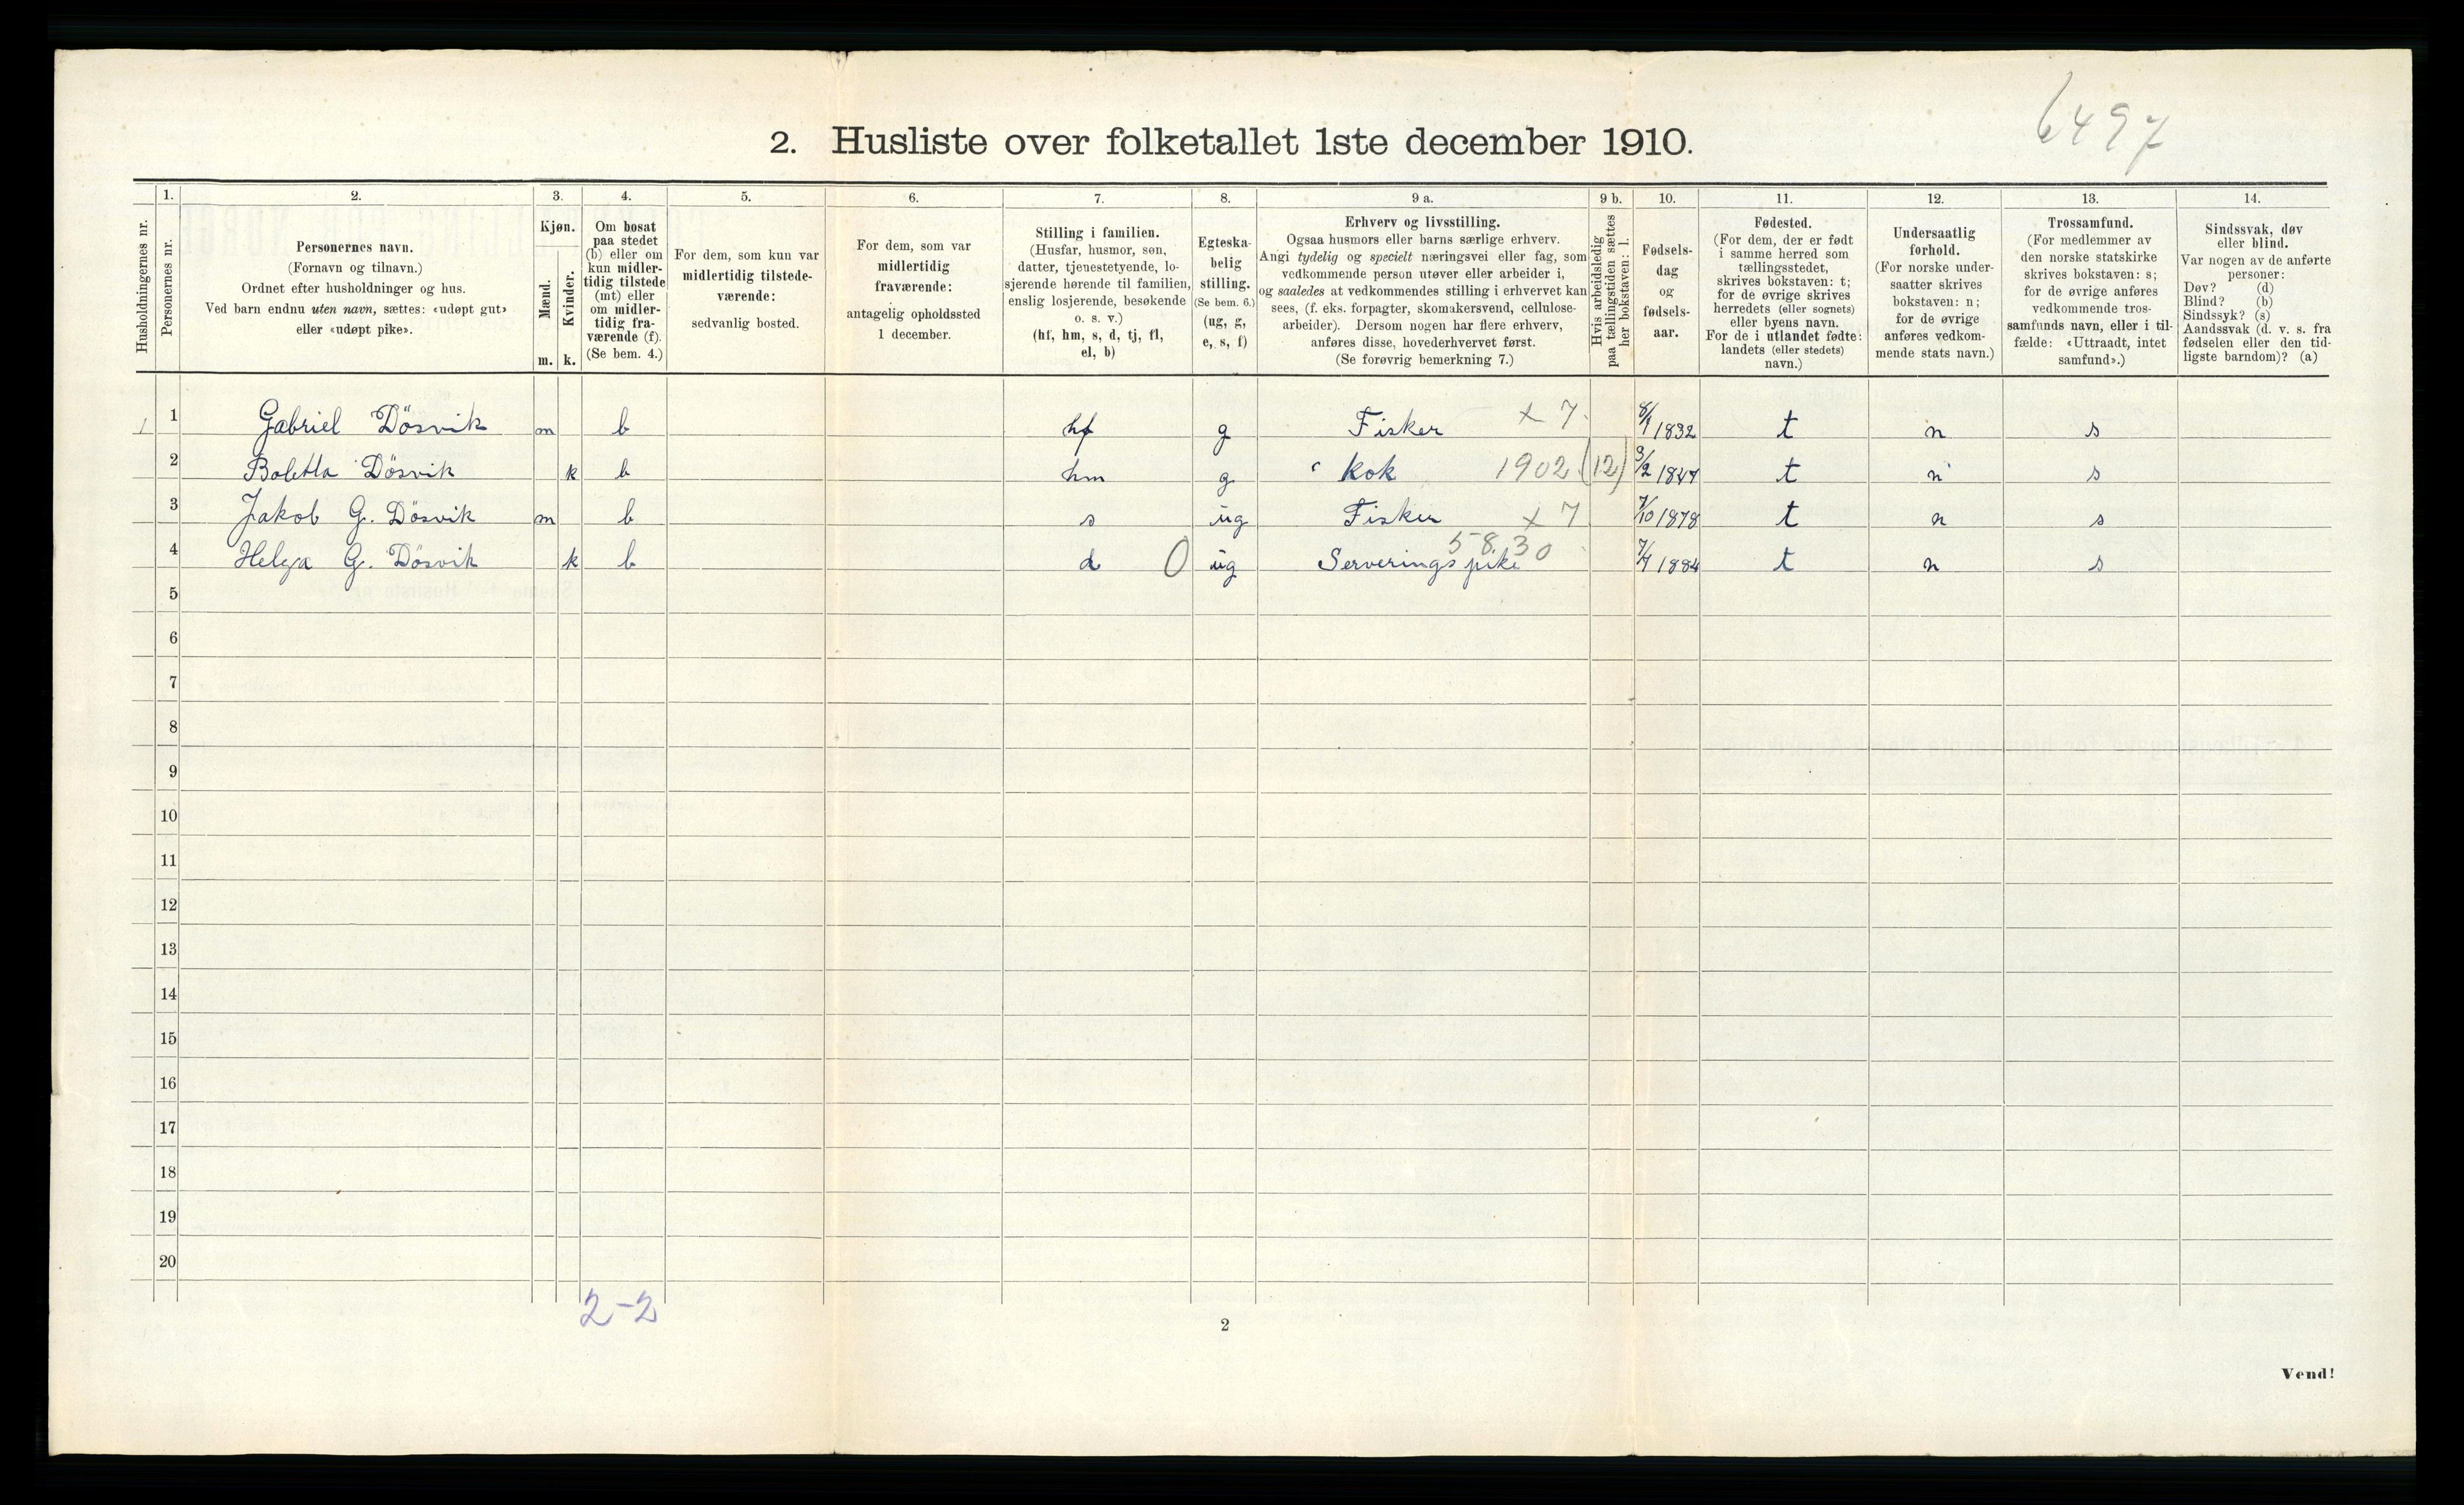 6497
2. Husliste over folketallet 1ste december 1910.
Husholdningernes nr.
1.
Personernes nr.
2.
Personernes navn.
(Fornavn og tilnavn.)
Ordnet efter husholdninger og hus.
Ved barn endnu uten navn, sættes: «udøpt gut»
eller «udøpt pike».
3.
Kjøn.
Mænd.
Kvinder.
m. k.
4.
Om bosat
paa stedet
(b) eller om
kun midler-
tidig tilstede
(mt) eller
om midler-
tidig fra-
værende (f).
(Se bem. 4.)
5.
For dem, som kun var
midlertidig tilstede-
værende:
sedvanlig bosted.
6.
For dem, som var
midlertidig
fraværende:
antagelig opholdssted
1 december.
7.
Stilling i familien.
(Husfar, husmor, søn,
datter, tjenestetyende, lo-
sjerende hørende til familien,
enslig losjerende, besøkende
o. s. v.)
(hf, hm, s, d, tj, fl,
el, b)
8.
Egteska-
belig
stilling.
(Se bem. 6.)
(ug, g,
e, s, f)
9 a.
Erhverv og livsstilling.
Ogsaa husmors eller barns særlige erhverv.
Angi tydelig og specielt næringsvei eller fag, som
vedkommende person utøver eller arbeider i,
og saaledes at vedkommendes stilling i erhvervet kan
sees, (f. eks. forpagter, skomakersvend, cellulose-
arbeider). Dersom nogen har flere erhverv,
anføres disse, hovederhvervet først.
(Se forøvrig bemerkning 7.)
9 b.
Hvis arbeidsledig
paa tællingstiden sættes
her bokstaven: l.
10.
Fødsels-
dag
og
fødsels-
aar.
11.
Fødested.
(For dem, der er født
i samme herred som
tællingsstedet,
skrives bokstaven: t;
for de øvrige skrives
herredets (eller sognets)
eller byens navn.
For de i utlandet fødte:
landets (eller stedets)
navn.)
12.
Undersaatlig
forhold.
(For norske under-
saatter skrives
bokstaven: n;
for de øvrige
anføres vedkom-
mende stats navn.)
13.
Trossamfund.
(For medlemmer av
den norske statskirke
skrives bokstaven: s;
for de øvrige anføres
vedkommende tros-
samfunds navn, eller i til-
fælde: «Uttraadt, intet
samfund».)
14.
Sindssvak, døv
eller blind.
Var nogen av de anførte
personer:
Døv? (d)
Blind? (b)
Sindssyk? (s)
Aandssvak (d. v. s. fra
fødselen eller den tid-
ligste barndom)? (a)
1 1 Gabriel Dösvik m b hf g Fisker x 7. 1832 t n s
2 Boletta Dösvik k b hm g kok 1902 (12) 3/2 1847 t n s
3 Jakob G. Dösvik m b s ug Fisker x 7 7/10 1878 t n s
4 Helga G. Dösvik k b d 0 ug Serveringspike 58.30 1884 t n s
5
6
7
8
9
10
11
12
13
14
15
16
17
18
19
20
2-2
2
Vend!